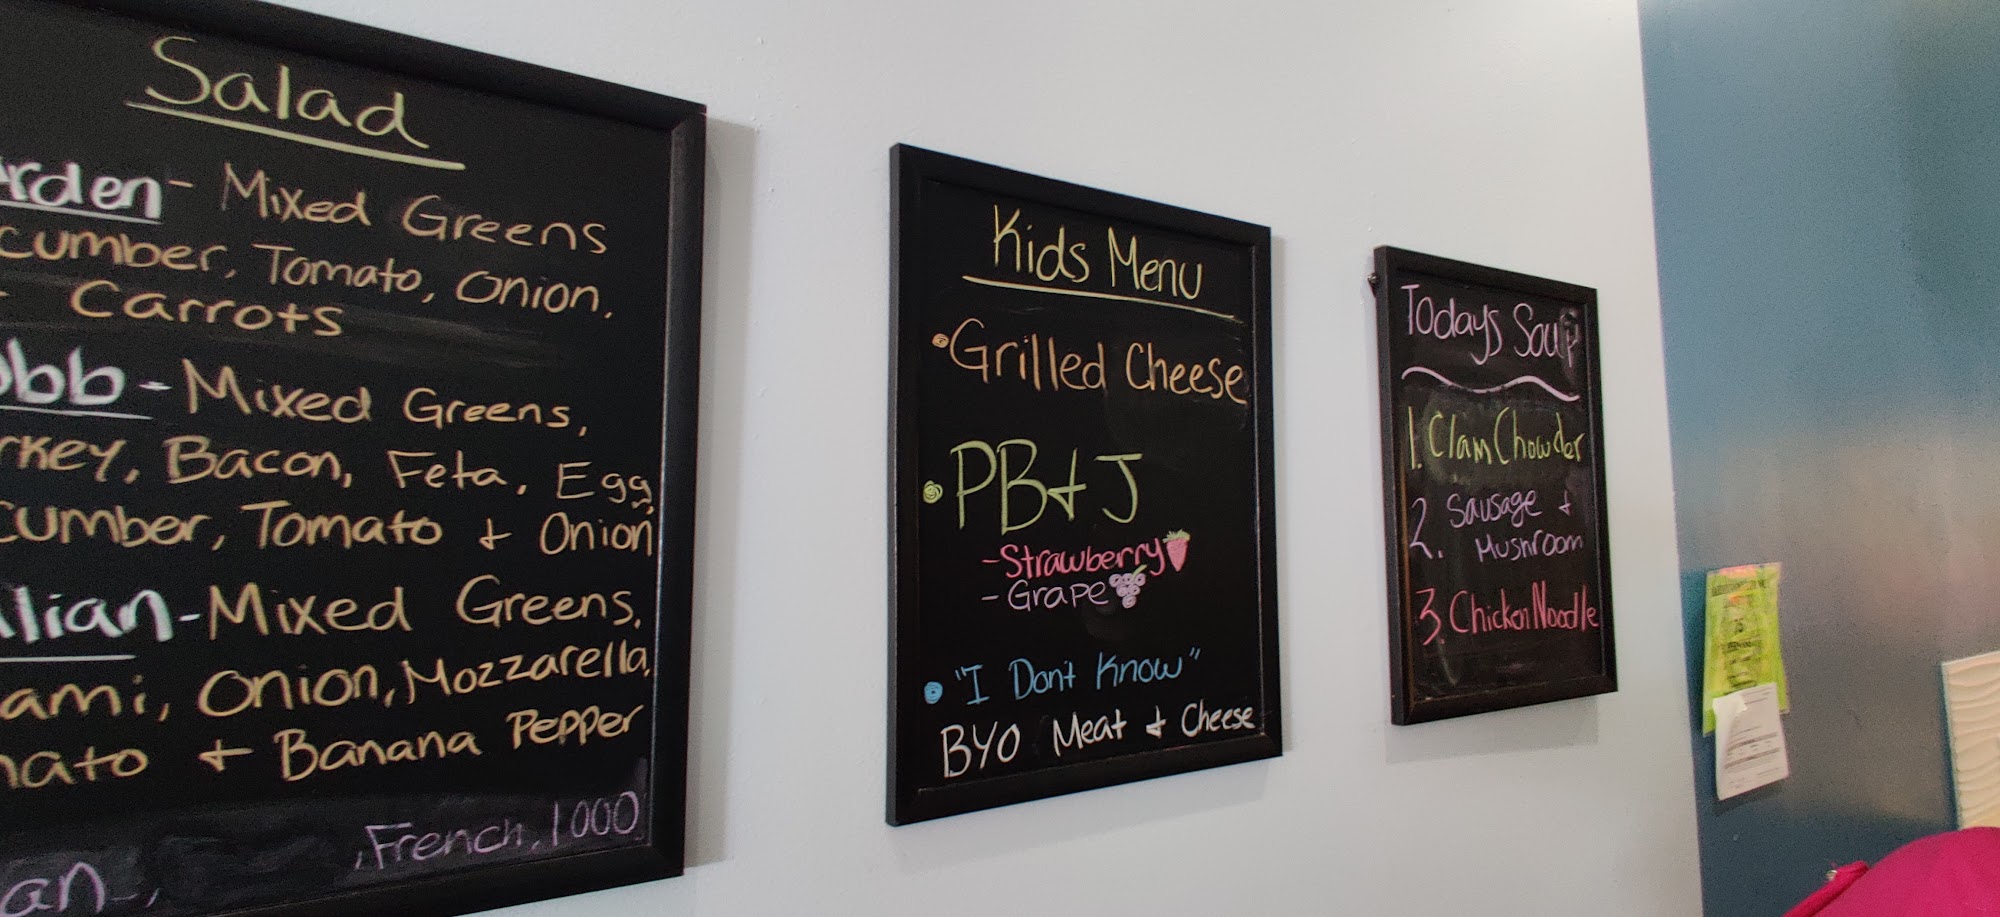 Salad
arden - Mixed Greens
cumber, Tomato, Onion,
+ Carrots
obb - Mixed Greens,
rkey, Bacon, Feta, Egg,
cumber, Tomato + Onion
alian - Mixed Greens,
ami, Onion, Mozzarella,
mato + Banana Pepper
, French, 1000
an ,
Kids Menu
• Grilled Cheese
• PB+J
- Strawberry
- Grape
• "I Don't Know"
BYO Meat + Cheese
Todays Soup
1. Clam Chowder
2. Sausage +
Mushroom
3. Chicken Noodle